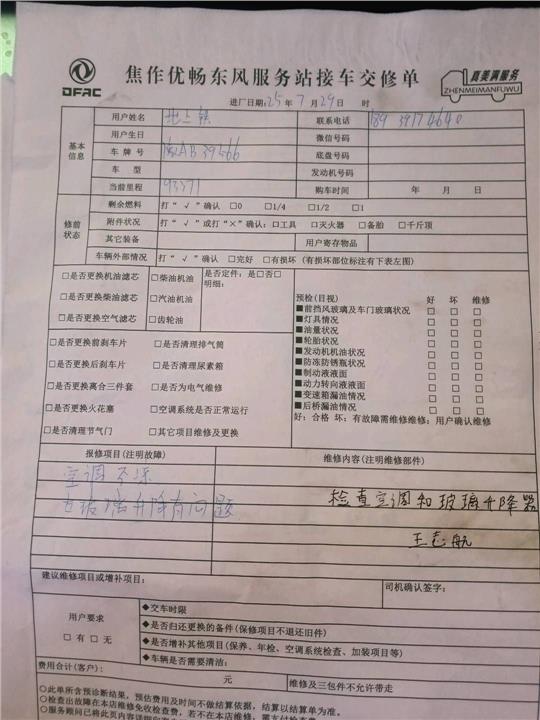 DFAC
焦作优畅东风服务站接车交修单
真美满服务
ZHENMEIMANFUWU
进厂日期:25年7月29日 时
基本信息
用户姓名 地上铁 联系电话 189 3917 4640
用户生日 微信号码
车牌号 豫AB39566 底盘号码
车型 发动机号码
当前里程 93371 购车时间 年 月 日
修前状态
剩余燃料 打“√”确认 □0 □1/4 □1/2 □1
附件状况 打“√”或打“×”确认:□工具 □灭火器 □备胎 □千斤顶
其它装备 用户寄存物品
车辆外部情况 打“√”确认 □完好 □有损坏(有损坏部位标注有下表左图)
□是否更换机油滤芯 □柴油机油 是否定件:是□否□
明细:
□是否更换柴油滤芯 □汽油机油
□是否更换空气滤芯 □齿轮油
□是否更换前刹车片 □是否清理排气筒
□是否更换后刹车片 □是否清理尿素箱
□是否更换离合三件套 □是否为电气维修
□是否更换火花塞 □空调系统是否正常运行
□是否清理节气门 □其它项目维修及更换
预检(目视) 好 坏 维修
■前挡风玻璃及车门玻璃状况 □ □ □
■灯具情况 □ □ □
■油量状况 □ □ □
■轮胎状况 □ □ □
■发动机机油状况 □ □ □
■防冻防锈瓶状况 □ □ □
■制动液液面 □ □ □
■动力转向液液面 □ □ □
■变速箱漏油情况 □ □ □
■后桥漏油情况 □ □ □
好:合格 坏:有故障需维修维修:用户确认维修
报修项目(注明故障) 维修内容(注明维修部件)
空调不凉
玻璃升降有问题
检查空调和玻璃升降器
王志航
建议维修项目或增补项目: 司机确认签字:
用户要求
□有 □无
◆交车时限
◆是否归还更换的备件(保修项目不退还旧件)
◆是否增补其他项目(保养、年检、空调系统检查、加装项目等)
◆车辆是否需要清洁:
费用合计(客户): 元 维修及三包件不允许带走
○此单所含预诊断结果,预估费用及时间不做结算依据,结算以结算单为准。
○检查出故障在本店维修免收检查费,若不在本店维修,需支付检查费